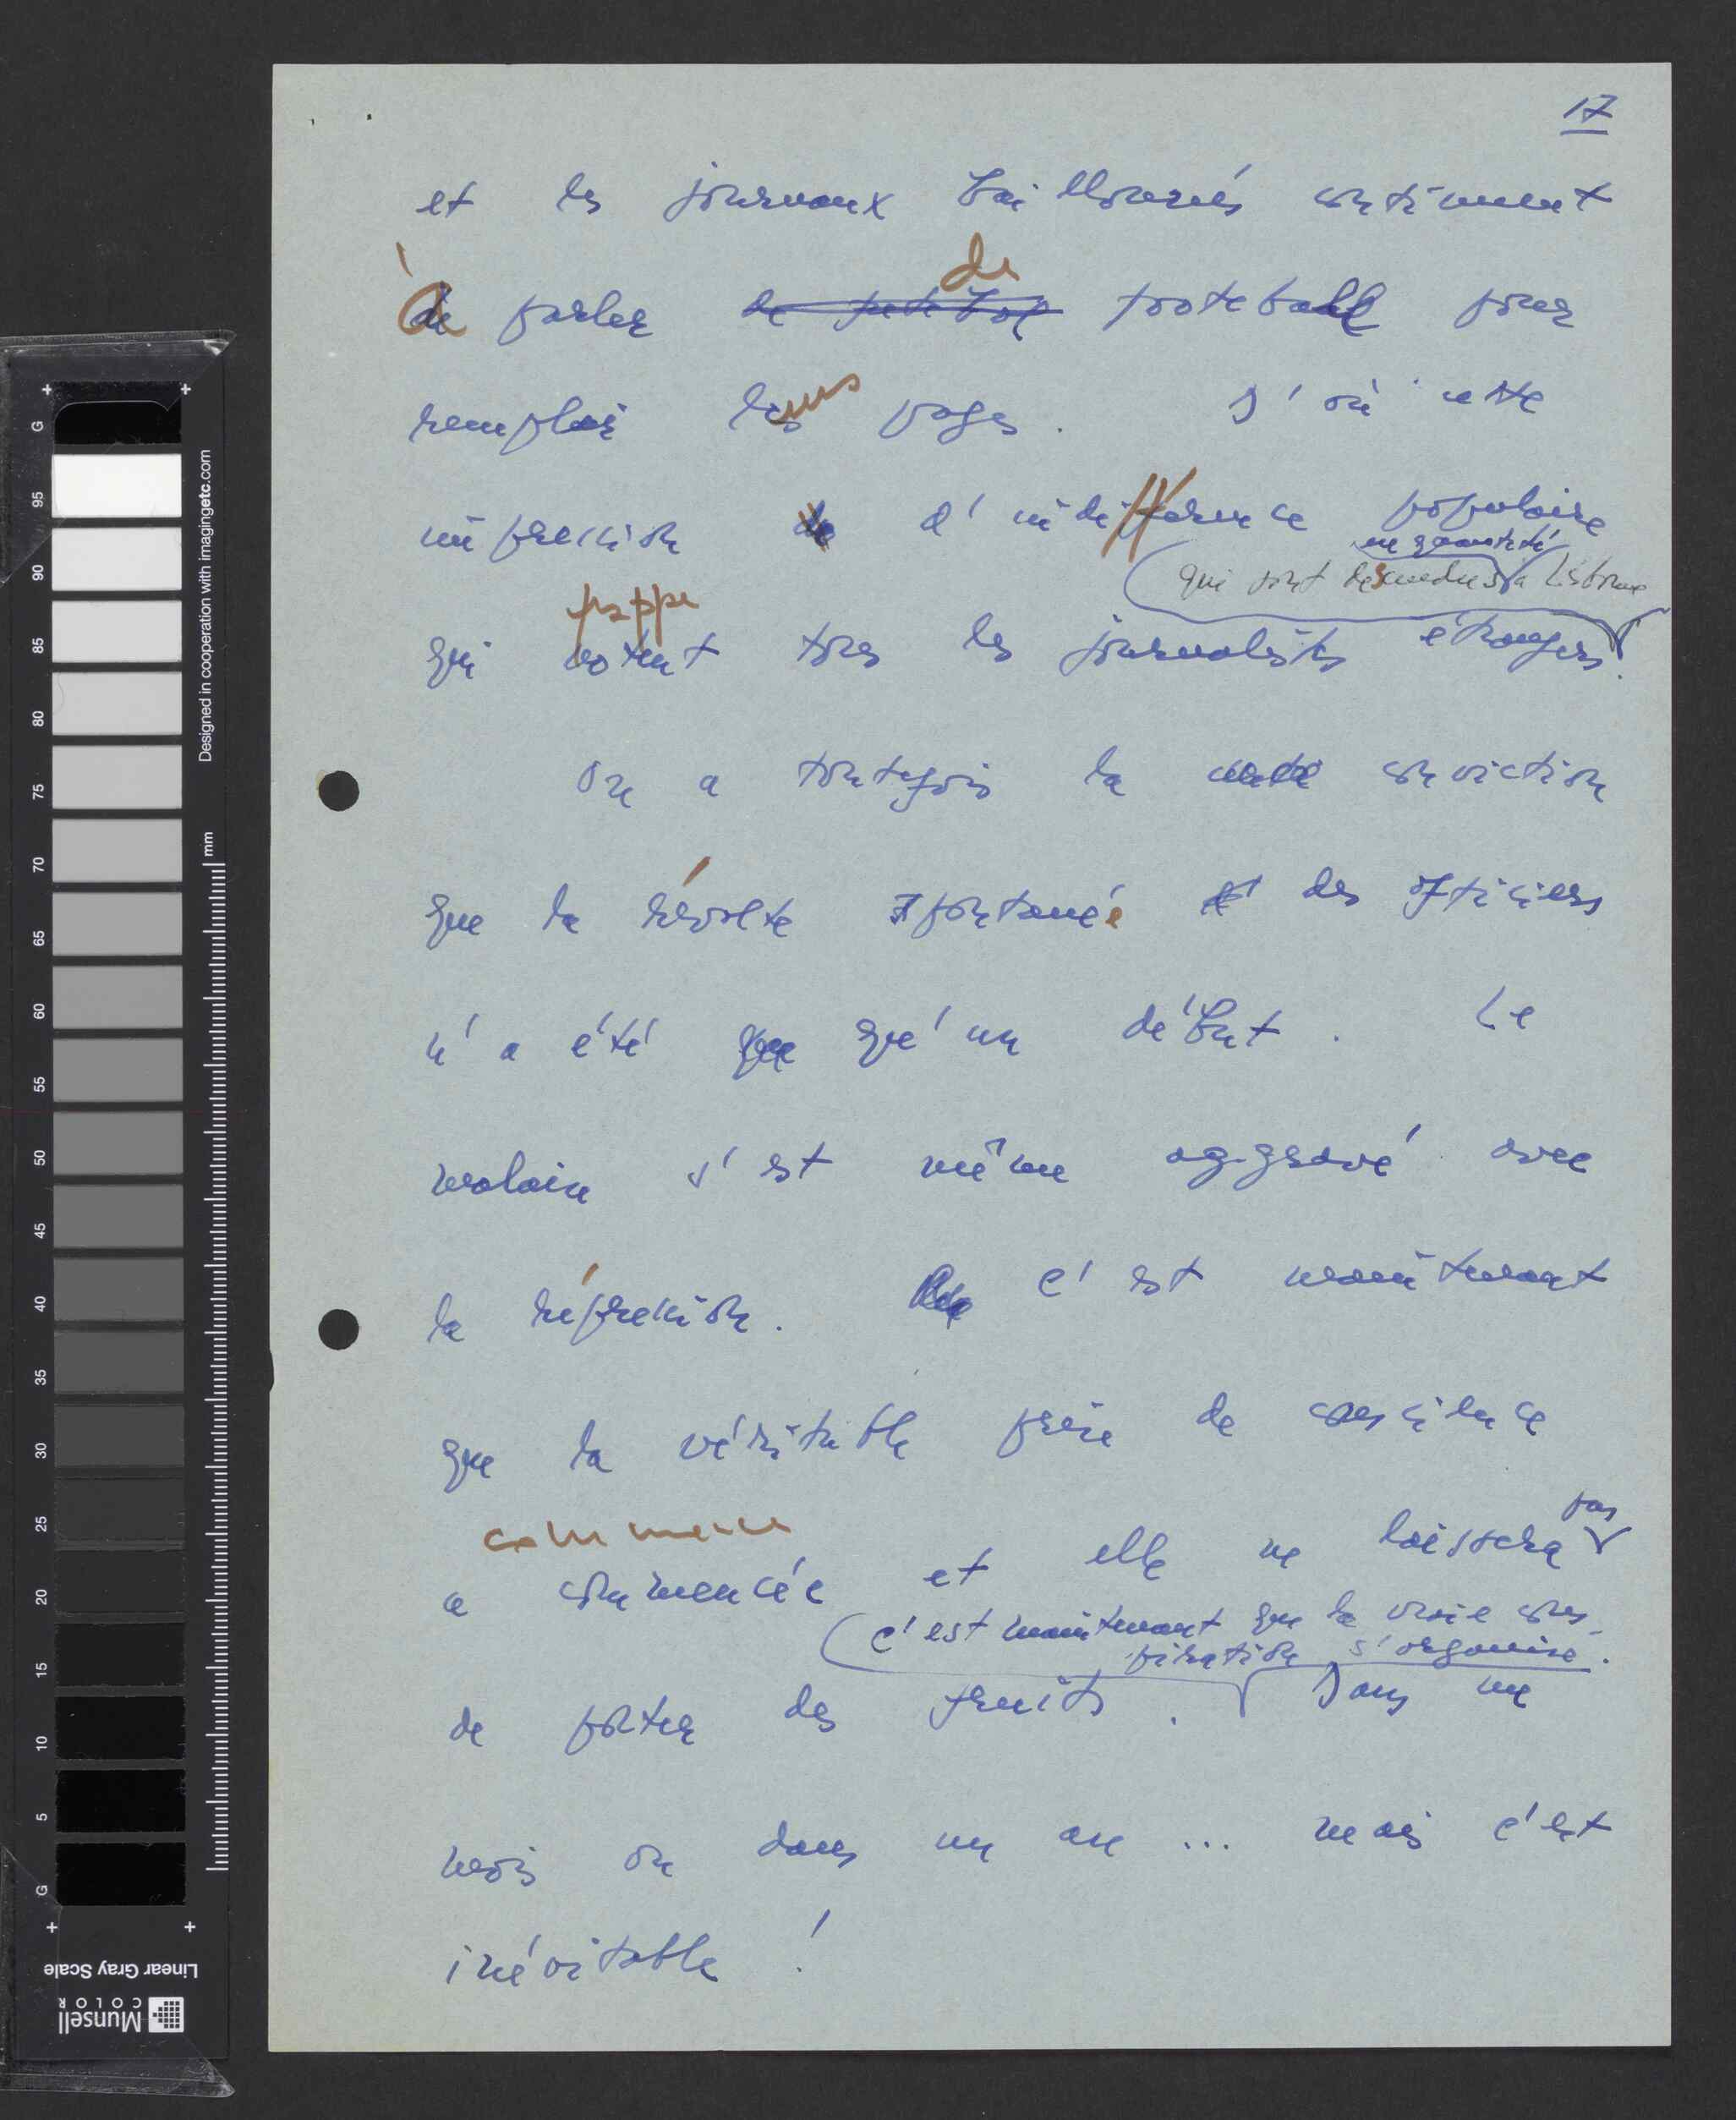 17
et les journaux baillonnés continuent
à parler de footeball pour
remplir leurs pages. D'où cette
impression d'indifférence populaire
en quantité
qui sont descendus à Lisbonne
frappe
qui notent tous les journalistes etrangers.
On a toutefois la conviction
que la révolte spontanée des officiers
n'a été que qu'un début. Le
malaise s'est même aggravé avec
la répression. C'est maintenant
que la véritable prise de conscience
commence pas
a commencée et elle ne laissera
c'est maintenant que la vraie cons-
piration s'organise.
de porter des fruits. Dans un
mois ou dans un an ... mais c'est
inévitable !
G 95 90 85 80 75 70 65 60 55 50 45 40 35 30 25 20 15 10 5 G
mm
Designed in cooperation with imagingetc.com
Linear Gray Scale
Munsell
COLOR